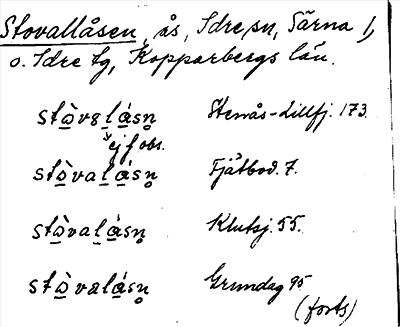 Stovallåsen, ås, Idre sn, Särna l,
o. Idre tg, Kopparbergs län.
stòvəlásn̥ Stenås-Lillfj. 173.
ej f obs.
stòvalásn̥ Fjätbod. 7.
stòvalásn̥ Klutsj. 55.
stòvalásn̥ Grundag 95
(forts)